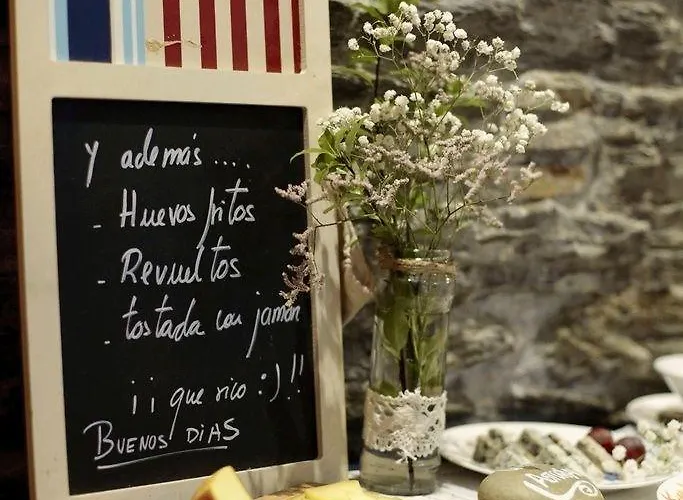 y además ....
- Huevos fritos
- Revueltos
- tostada con jamón
¡¡ que rico :) !!
BUENOS DIAS